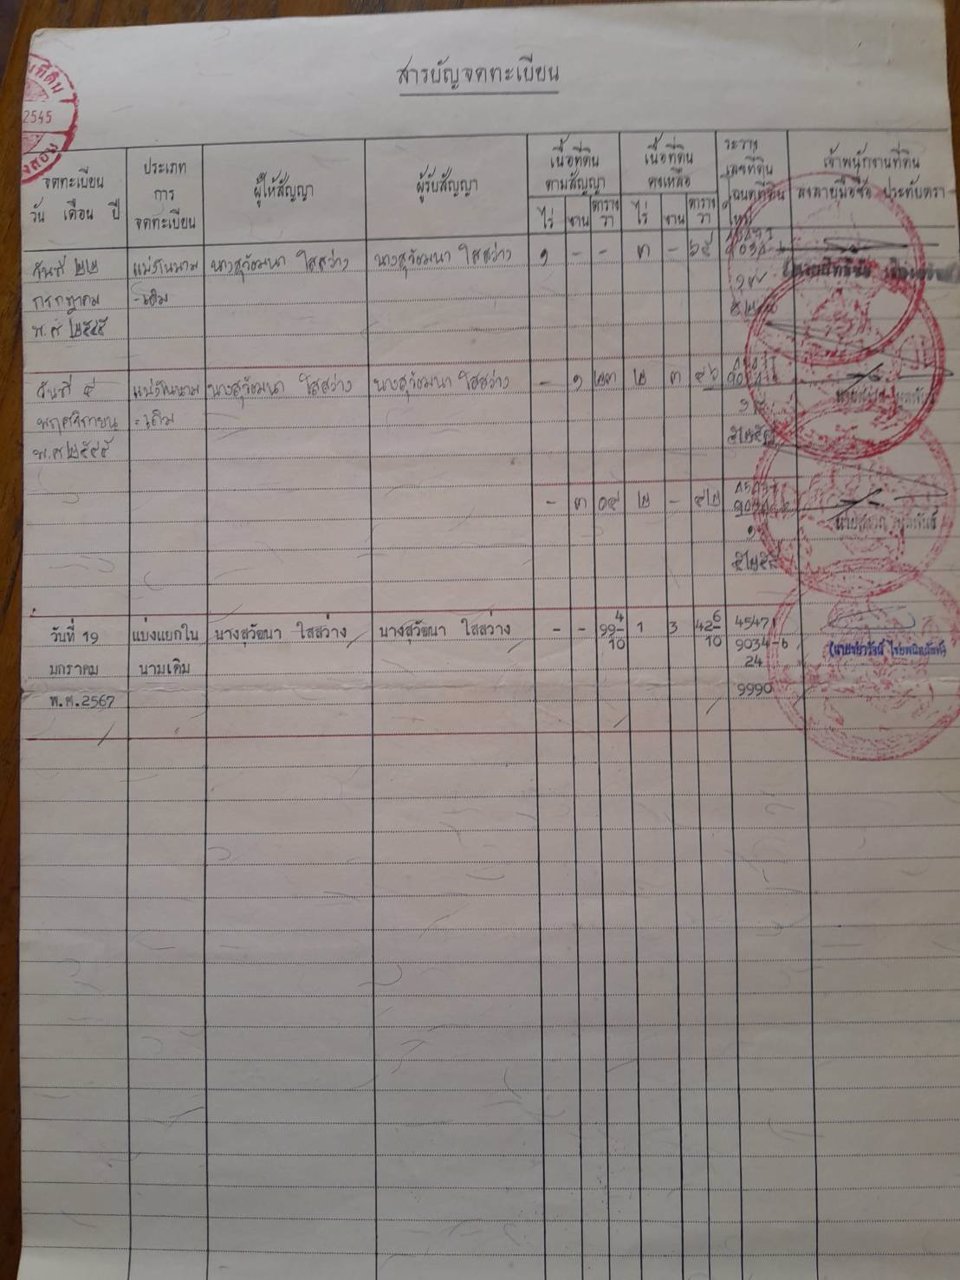 สารบัญจดทะเบียน
2545
จดทะเบียน
วัน เดือน ปี
ประเภท
การ
จดทะเบียน
ผู้ให้สัญญา
ผู้รับสัญญา
เนื้อที่ดิน
ตามสัญญา
ไร่ งาน ตาราง
วา
เนื้อที่ดิน
คงเหลือ
ไร่ งาน ตาราง
วา
ระวาง
เลขที่ดิน
โฉนดที่ดิน
ใหม่
เจ้าพนักงานที่ดิน
ลงลายมือชื่อ ประทับตรา
วันที่ ๒๒ แบ่งในนาม นางสุวัฒนา ใสสว่าง นางสุวัฒนา ใสสว่าง ๑ - - ๓ - ๖๕
กรกฎาคม -เดิม
พ.ศ ๒๕๔๕
วันที่ ๔ แบ่งในนาม นางสุวัฒนา ใสสว่าง นางสุวัฒนา ใสสว่าง - ๑ ๒๓ ๒ ๓ ๔๖
พฤศจิกายน -เดิม
พ.ศ ๒๕๔๕
- ๓ ๐๔ ๒ - ๔๒
วันที่ 19 แบ่งแยกใน นางสุวัฒนา ใสสว่าง นางสุวัฒนา ใสสว่าง - - 99 4/10 1 3 42 6/10 45471
9034-6
มกราคม นามเดิม 24
พ.ศ.2567 9990